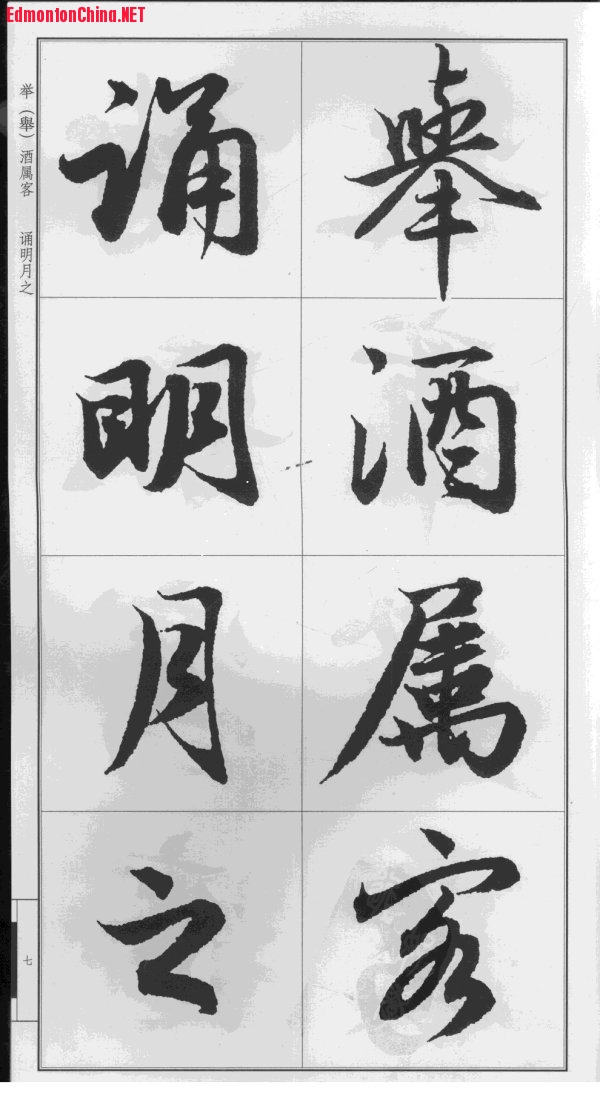 EdmontonChina.NET
舉酒属客
诵明月之
举（舉）酒属客 诵明月之
七